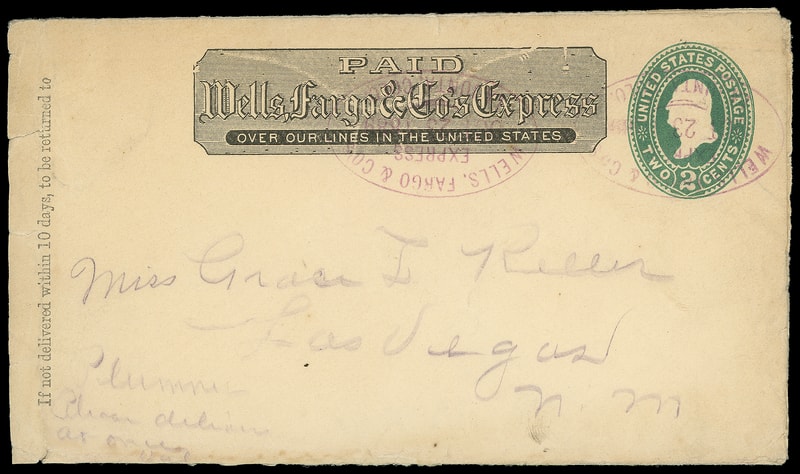 PAID
Wells, Fargo & Co's Express
OVER OUR LINES IN THE UNITED STATES
UNITED STATES POSTAGE
TWO 2 CENTS
WELLS, FARGO & CO
EXPRESS
WELL & CO
23
If not delivered within 10 days, to be returned to
Miss Grace L Keller
Las Vegas
N. M
Plummer
Please deliver
at once